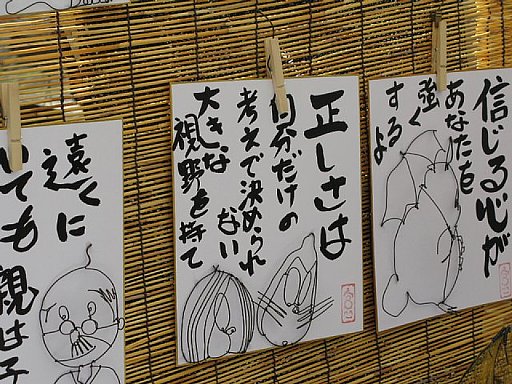 信じる心が
あなたを
強く
するよ
正しさは
自分だけの
考えで決められ
ない
大きな
視野を持て
遠くに
いても
親は子